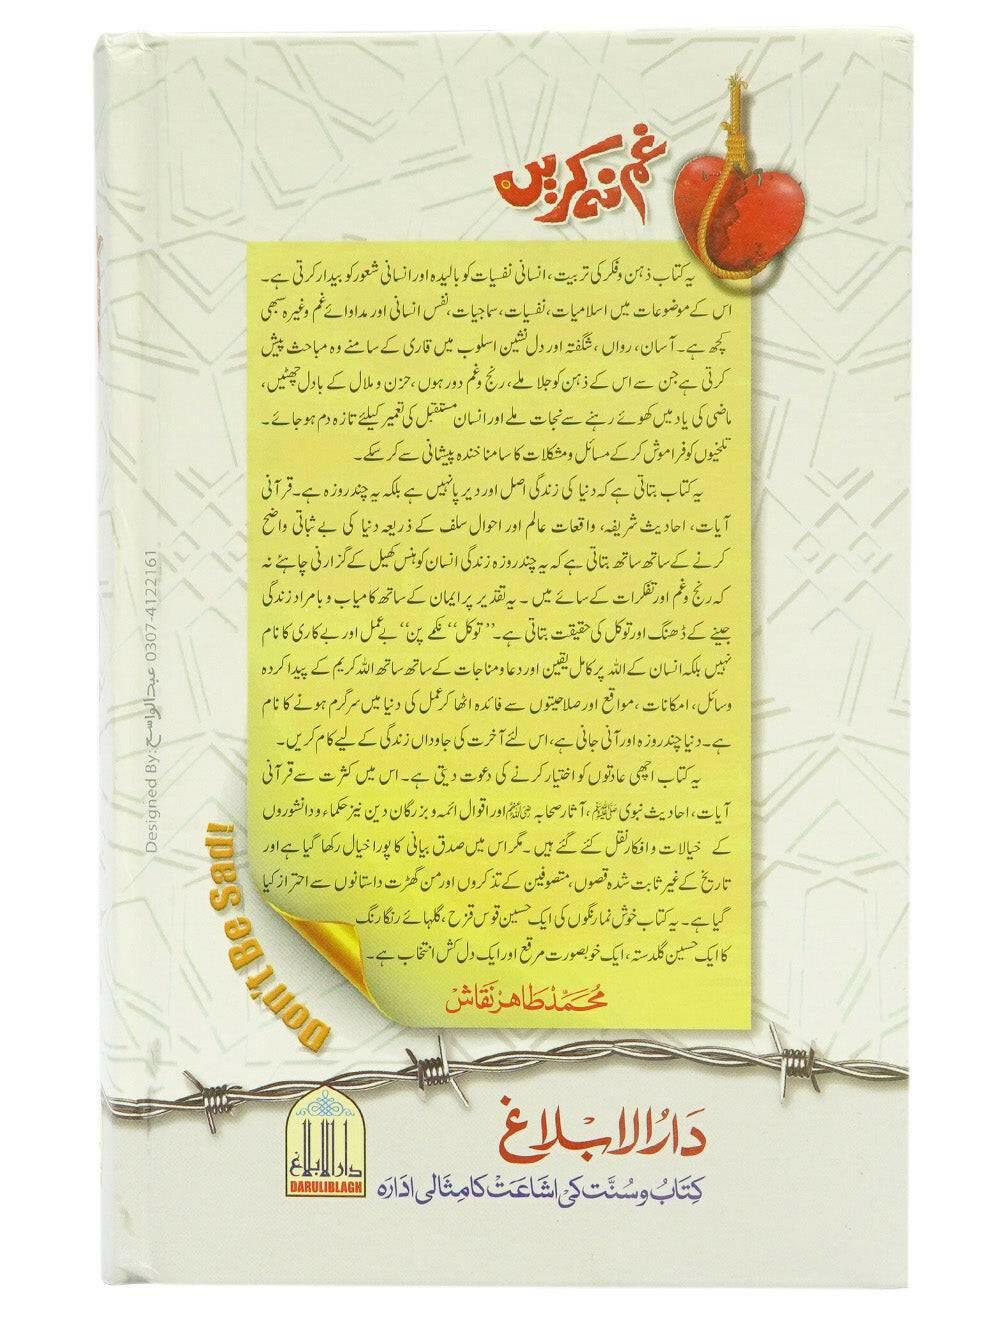 غم نہ کریں
یہ کتاب ذہن و فکر کی تربیت، انسانی نفسیات کو بالیدہ اور انسانی شعور کو بیدار کرتی ہے۔
اس کے موضوعات میں اسلامیات، نفسیات، سماجیات، نفس انسانی اور مداوائے غم وغیرہ سبھی
کچھ ہے۔ آسان، رواں، شگفتہ اور دل نشین اسلوب میں قاری کے سامنے وہ مباحث پیش
کرتی ہے جن سے اس کے ذہن کو جلا ملے، رنج و غم دور ہوں، حزن و ملال کے بادل چھٹیں،
ماضی کی یاد میں کھوئے رہنے سے نجات ملے اور انسان مستقبل کی تعمیر کیلئے تازہ دم ہو جائے۔
تلخیوں کو فراموش کر کے مسائل و مشکلات کا سامنا خندہ پیشانی سے کر سکے۔
یہ کتاب بتاتی ہے کہ دنیا کی زندگی اصل اور دیرپا نہیں ہے بلکہ یہ چند روزہ ہے۔ قرآنی
آیات، احادیث شریفہ، واقعات عالم اور احوال سلف کے ذریعہ دنیا کی بے ثباتی واضح
کرنے کے ساتھ ساتھ بتاتی ہے کہ یہ چند روزہ زندگی انسان کو ہنس کھیل کے گزارنی چاہئے نہ
کہ رنج و غم اور تفکرات کے سائے میں۔ یہ تقدیر پر ایمان کے ساتھ کامیاب و بامراد زندگی
جینے کے ڈھنگ اور توکل کی حقیقت بتاتی ہے۔ ’’توکل‘‘ نکمے پن‘‘ بے عمل اور بے کاری کا نام
نہیں بلکہ انسان کے اللہ پر کامل یقین اور دعا و مناجات کے ساتھ ساتھ اللہ کریم کے پیدا کردہ
وسائل، امکانات، مواقع اور صلاحیتوں سے فائدہ اٹھا کر عمل کی دنیا میں سرگرم ہونے کا نام
ہے۔ دنیا چند روزہ اور آنی جانی ہے، اس لئے آخرت کی جاوداں زندگی کے لیے کام کریں۔
یہ کتاب اچھی عادتوں کو اختیار کرنے کی دعوت دیتی ہے۔ اس میں کثرت سے قرآنی
آیات، احادیث نبوی ﷺ، آثار صحابہ اور اقوال ائمہ و بزرگان دین نیز حکماء و دانشوروں
کے خیالات و افکار نقل کئے گئے ہیں۔ مگر اس میں صدق بیانی کا پورا خیال رکھا گیا ہے اور
تاریخ کے غیر ثابت شدہ قصوں، متصوفین کے تذکروں اور من گھڑت داستانوں سے احتراز کیا
گیا ہے۔ یہ کتاب خوش نما رنگوں کی ایک حسین قوس قزح، گلہائے رنگا رنگ
کا ایک حسین گلدستہ، ایک خوبصورت مرقع اور ایک دل کش انتخاب ہے۔
محمد طاہر نقاش
Don't Be Sad!
Designed By: عبدالواسع 0307-4122161
دار الابلاغ
کتاب و سنت کی اشاعت کا مثالی ادارہ
دار الابلاغ
DARULIBLAGH